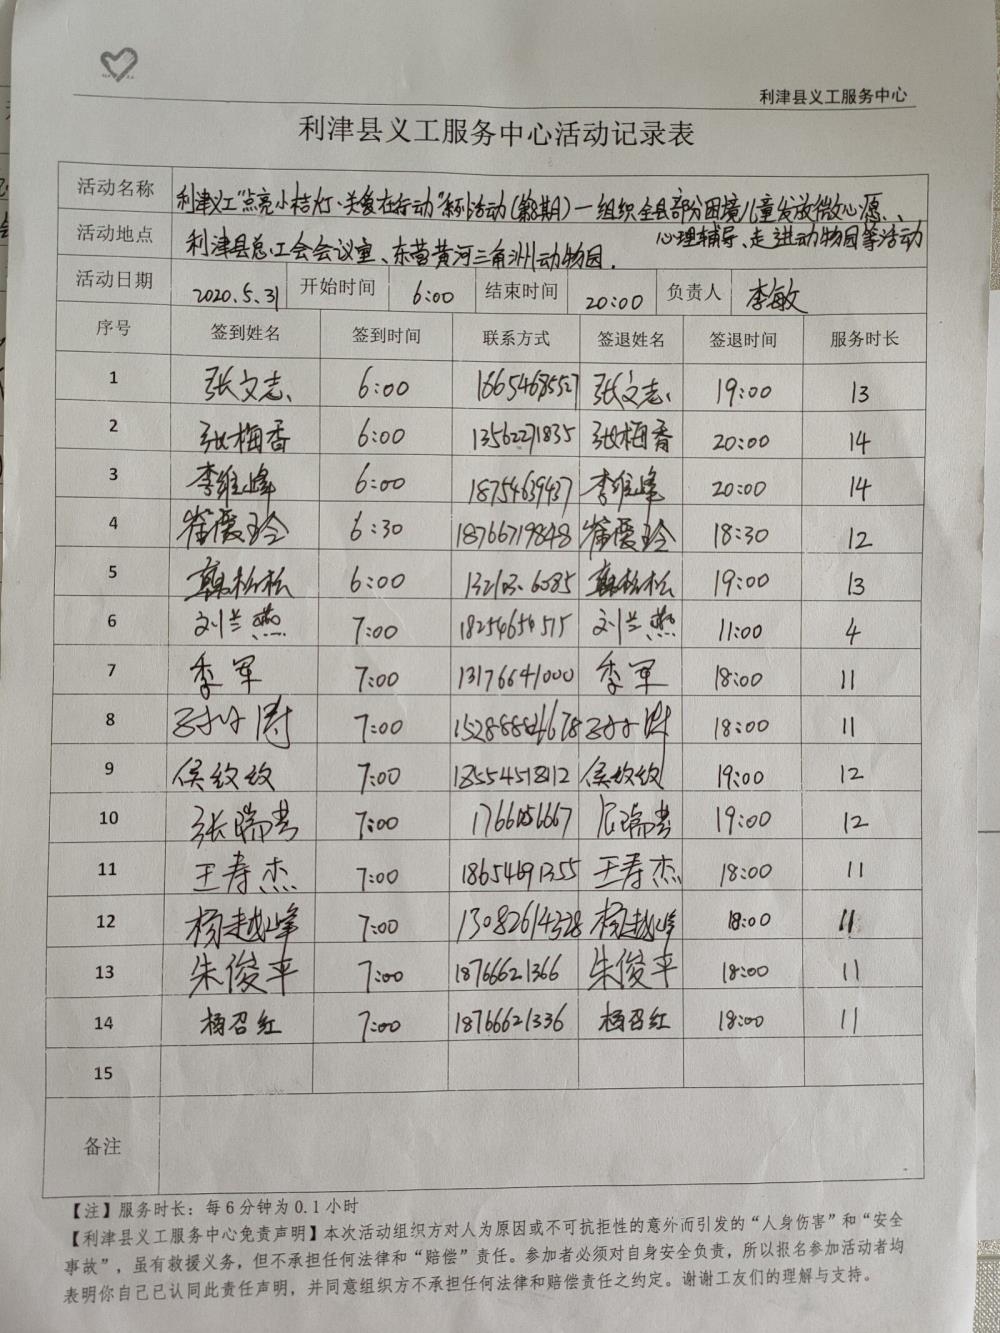 利津县义工服务中心
利津县义工服务中心活动记录表
活动名称 利津义工"点亮小桔灯·关爱在行动"系列活动(第8期)—组织全县部分困境儿童发放微心愿、
心理辅导、走进动物园等活动
活动地点 利津县总工会会议室、东营黄河三角洲动物园.
活动日期 2020.5.31 开始时间 6:00 结束时间 20:00 负责人 李敏
序号 签到姓名 签到时间 联系方式 签退姓名 签退时间 服务时长
1 张文志 6:00 16654685527 张文志 19:00 13
2 张梅香 6:00 13562271835 张梅香 20:00 14
3 李维峰 6:00 18754639437 李维峰 20:00 14
4 崔爱玲 6:30 18766719848 崔爱玲 18:30 12
5 6:00 19:00 13
6 刘兰燕 7:00 18254654575 刘兰燕 11:00 4
7 季军 7:00 13176641000 季军 18:00 11
8 7:00 18:00 11
9 侯纹纹 7:00 18554518112 侯纹纹 19:00 12
10 7:00 19:00 12
11 王寿杰 7:00 18654691355 王寿杰 18:00 11
12 杨越峰 7:00 13082614328 杨越峰 18:00 11
13 朱俊平 7:00 18766621366 朱俊平 18:00 11
14 杨召红 7:00 18766621336 杨召红 18:00 11
15
备注
【注】服务时长：每6分钟为0.1小时
【利津县义工服务中心免责声明】本次活动组织方对人为原因或不可抗拒性的意外而引发的“人身伤害”和“安全
事故”，虽有救援义务，但不承担任何法律和“赔偿”责任。参加者必须对自身安全负责，所以报名参加活动者均
表明你自己已认同此责任声明，并同意组织方不承担任何法律和赔偿责任之约定。谢谢工友们的理解与支持。